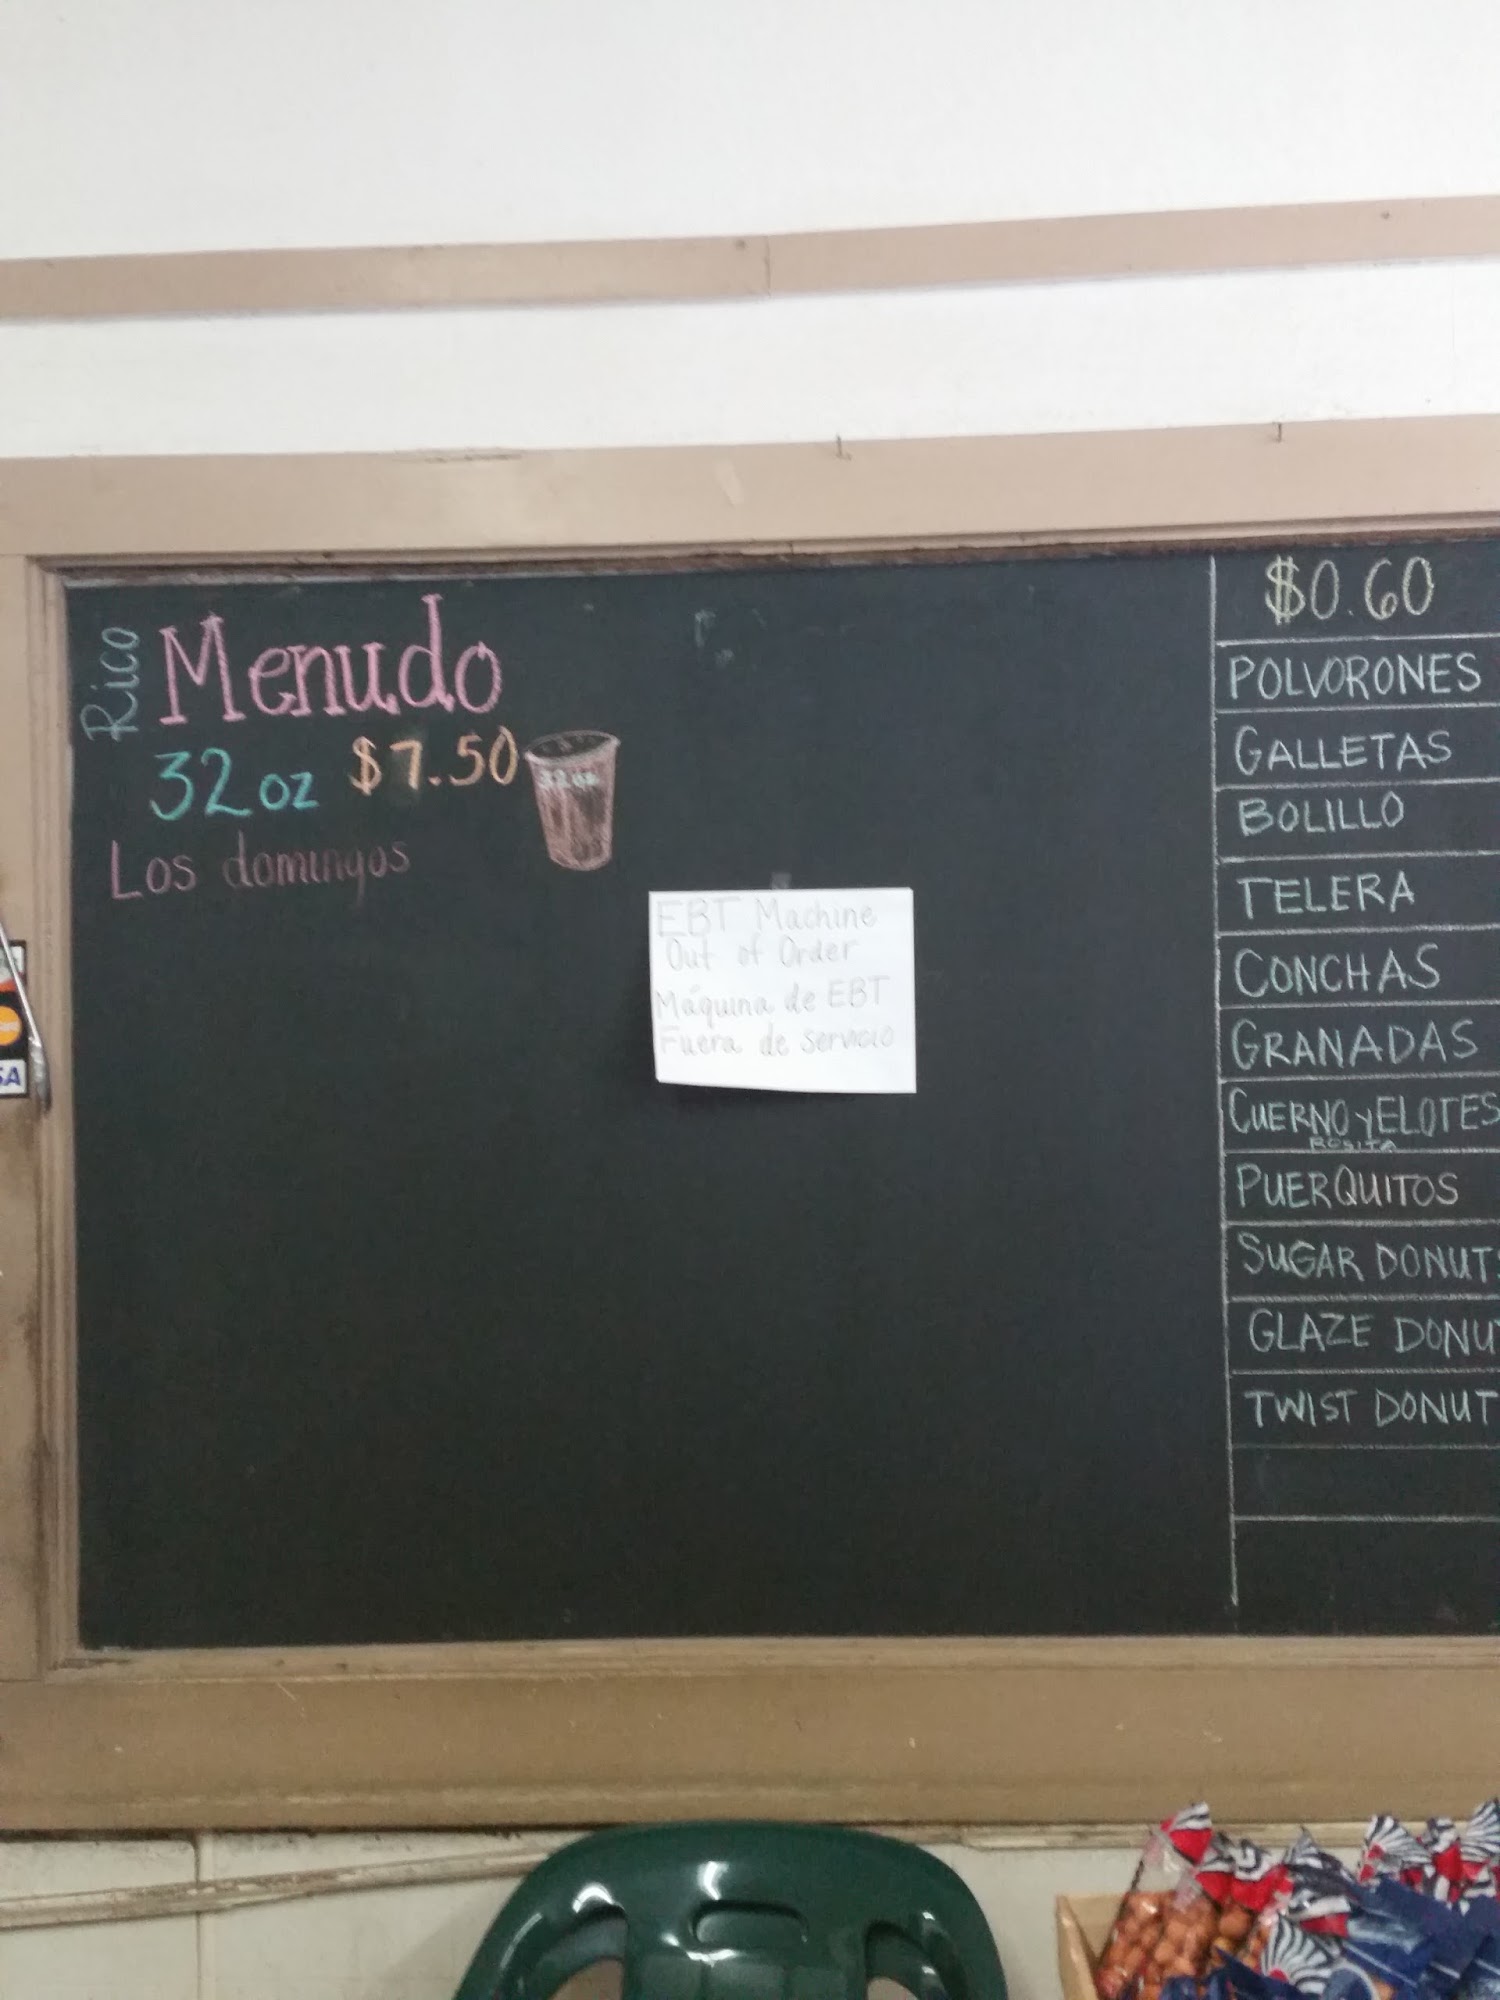 Rico
Menudo
32 oz $7.50
32 oz
Los domingos
EBT Machine
Out of Order
Máquina de EBT
Fuera de servicio
$0.60
POLVORONES
GALLETAS
BOLILLO
TELERA
CONCHAS
GRANADAS
CUERNO y ELOTES
ROSITA
PUERQUITOS
SUGAR DONUTS
GLAZE DONU
TWIST DONUT